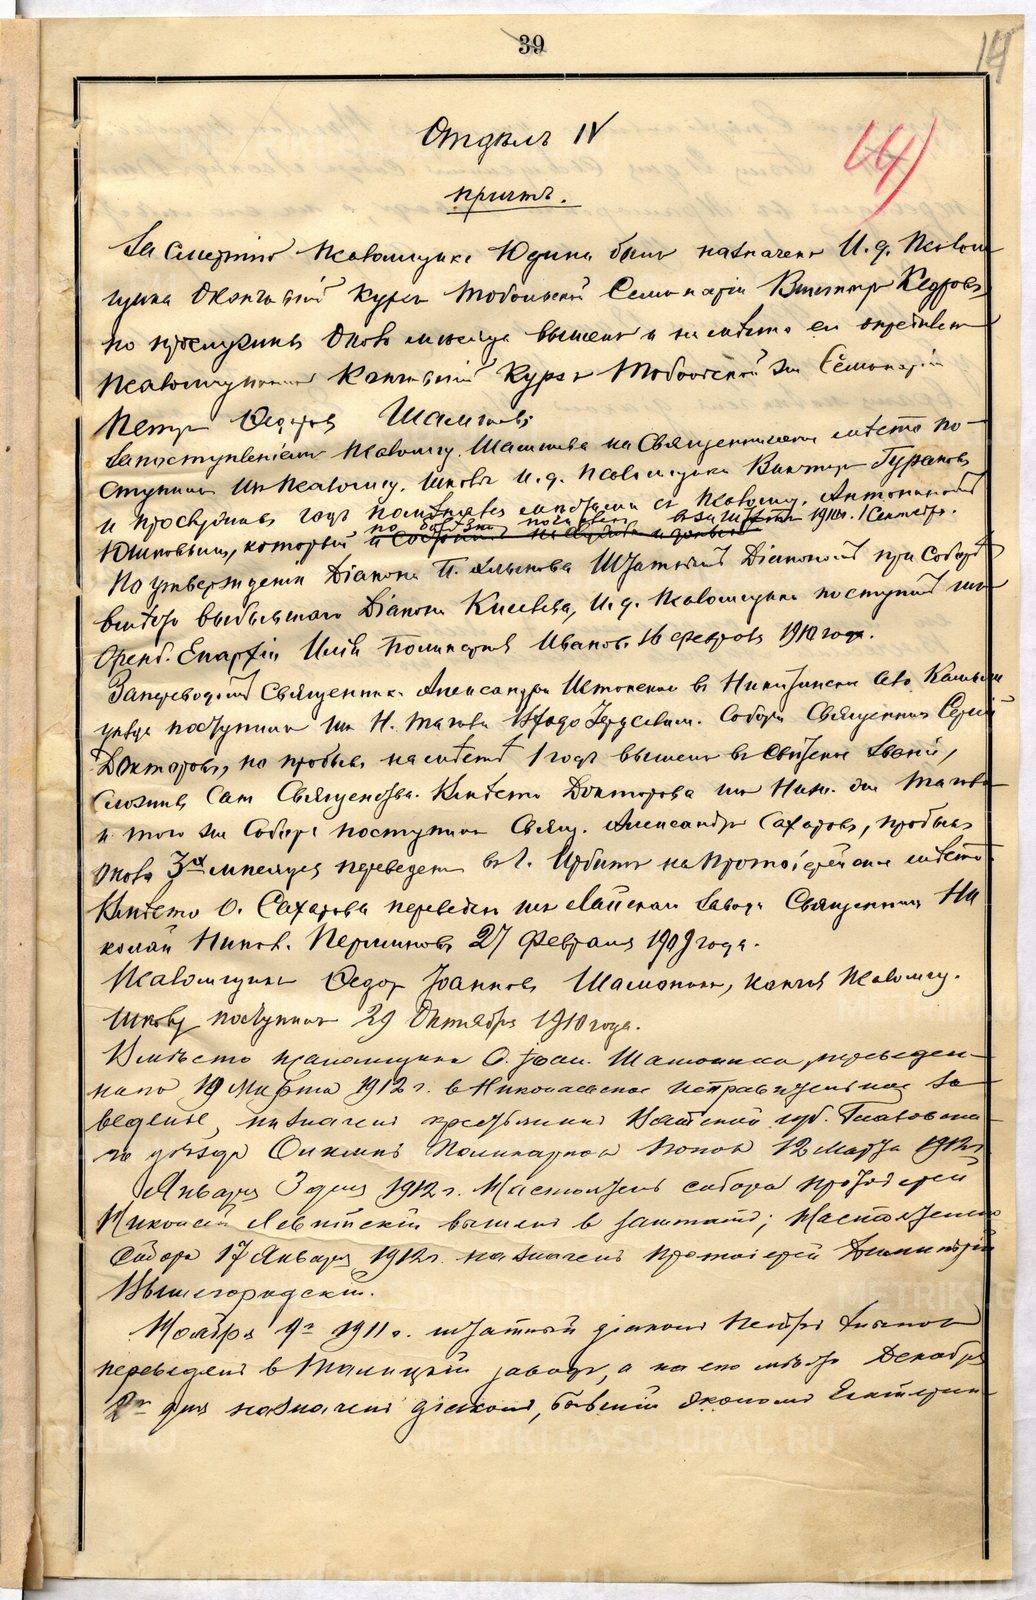 39
14
14)
Отдѣлъ IV
Причтъ.
За смертію Псаломщика Юдина былъ назначенъ И. д. Псалом
щика Окончившій Курсъ Тобольской Семинаріи Викторъ Кедровъ
но прослуживъ Около мѣсяца вышелъ и на мѣсто его опредѣленъ
Псаломщикомъ Кончившій Курсъ Тобольской же Семинаріи
Петръ Федоровъ
За поступленіемъ Псаломщ. на Священническое мѣсто по-
ступилъ И. д. Псаломщика Викторъ
и прослуживъ годъ мѣстами съ Псаломщ. Антониномъ
Юшковымъ, который по болѣзни вышелъ 1910 г. 1 Сентября.
По утвержденіи Діакона П. Штатнымъ Діакономъ при Соборѣ
вмѣсто выбывшаго Діакона Киселева, И. д. Псаломщика поступилъ изъ
Оренб. Епархіи Илія Поликарповъ Ивановъ 16 февраля 1910 года.
За переводомъ Священника Александра въ Камышл
уѣзда поступилъ изъ Н. Тагила Входо Іерусалим. Собора Священникъ Сергій
Докторовъ, но пробывъ на мѣстѣ 1 годъ вышелъ въ свѣтское званіе,
сложивъ Санъ Священства. Вмѣсто Докторова изъ Ниж. же Тагила
и того же Собора поступилъ Свящ. Александръ Сахаровъ, пробывъ
около 3-хъ мѣсяцевъ переведенъ въ г. Ирбитъ на Протоіерейское мѣсто
Вмѣсто О. Сахарова переведенъ изъ Лайскаго завода Священникъ Ни
колай Никол. Пермяковъ 27 Февраля 1909 года.
Псаломщикъ Федоръ Іоанновъ Шамонинъ, кончил Псаломщ.
школу поступилъ 29 Октября 1910 года.
Вмѣсто псаломщика Ѳ. Іоан. Шамонина, переведен-
наго 19 Марта 1912 г. въ Николаевское исправительное за
веденіе, назначенъ крестьянинъ Вятской губ. Глазовска
го уѣзда Поликарповъ Поповъ 12 Марта 1912 г.
Января 3 дня 1912 г. Настоятель собора протоіерей
Николай Левитскій вышелъ въ заштатъ; Настоятелемъ
Собора 17 Января 1912 г. назначенъ протоіерей Димитрій
Вышегородскій.
Ноября 9го 1911 г. штатный діаконъ Петръ
переведенъ въ Талицкій заводъ, а на его мѣсто Декабря
2го дня назначенъ діаконъ, бывшій Экономъ Екатерин-
METRIKI.GASO-URAL.RU